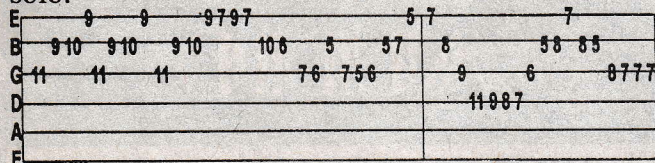 solo:
E 9 9 9797 5 7 7
B 910 910 910 106 5 57 8 58 85
G 11 11 11 76 756 9 6 8777
D 11987
A
E